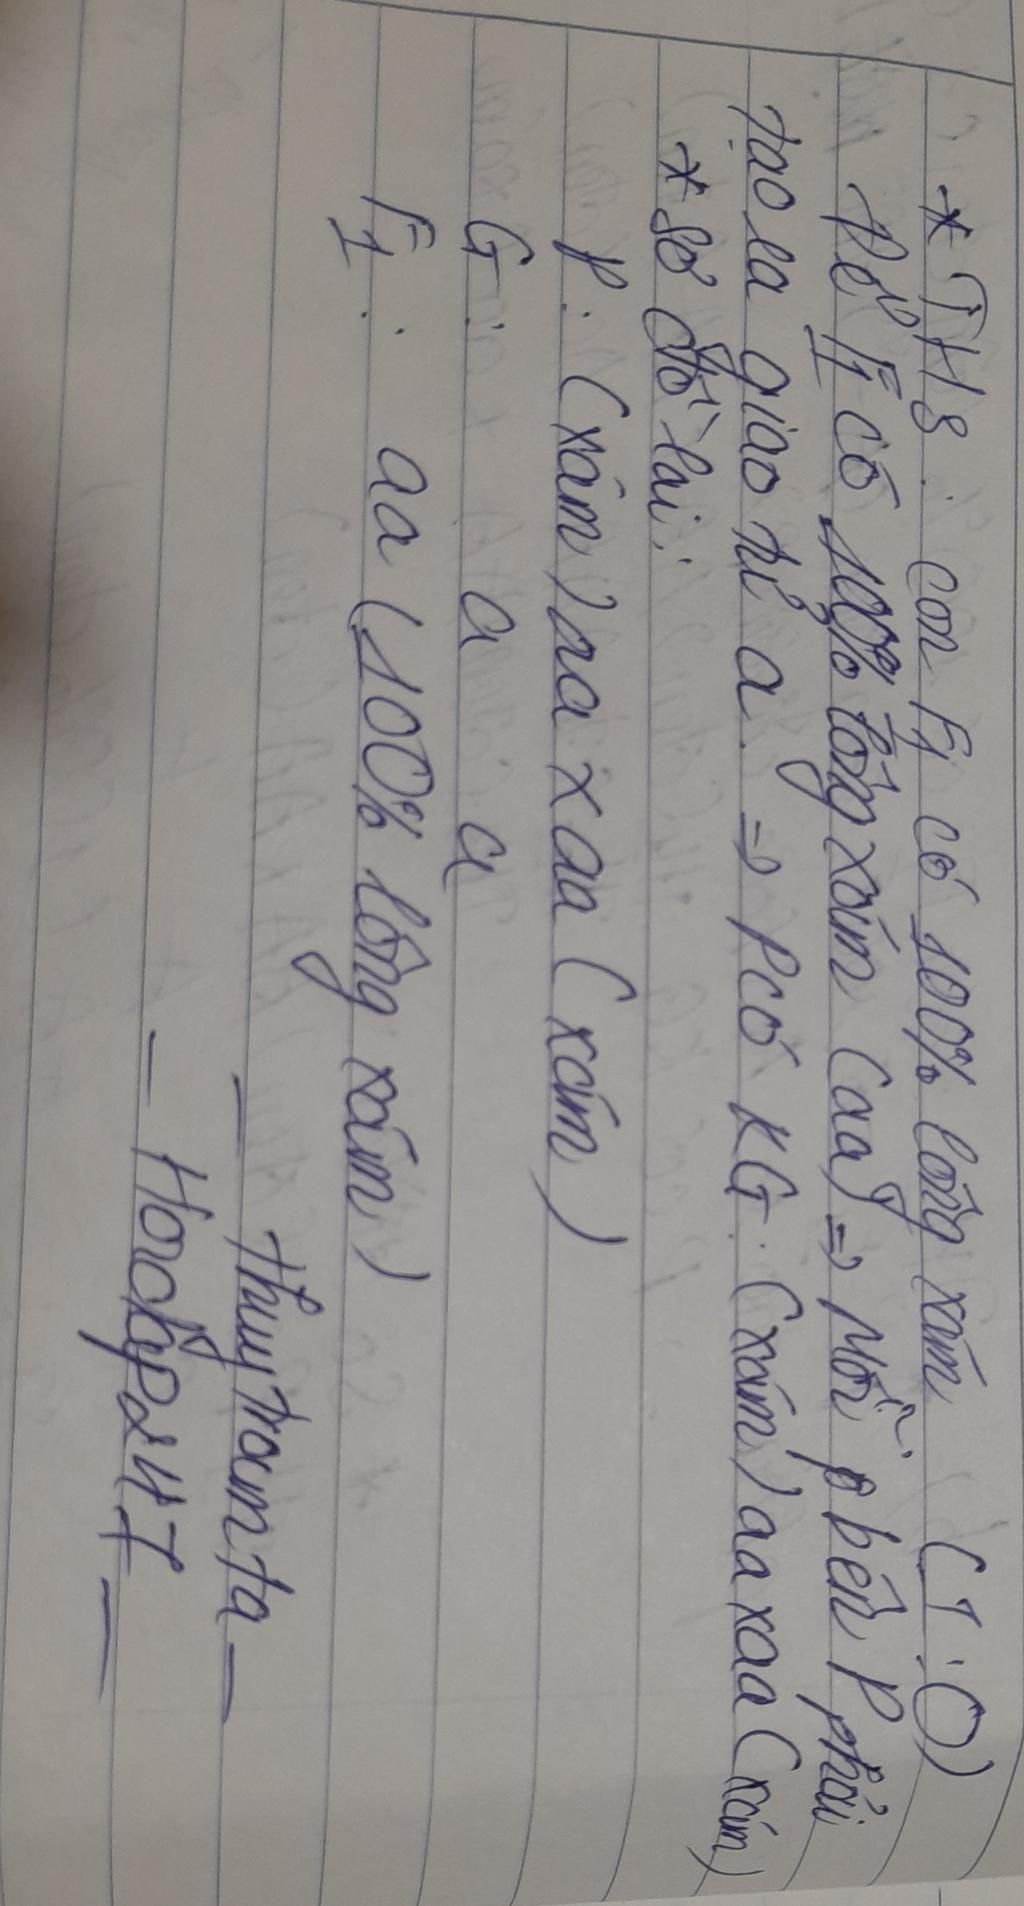 * TH3: con F1 có 100% lông xám (1:0)
Để F1 có 100% lông xám (aa) => Mỗi bên P phải
tạo ra giao tử a. => P có KG: (xám) aa x aa (xám)
* Sơ đồ lai:
P: (xám) aa x aa (xám)
G: a a
F1: aa (100% lông xám)